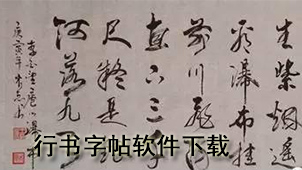 生紫烟遥
看瀑布挂
前川飞流
直下三千
尺疑是银
河落九天
李白望庐山瀑布
庚寅年
行书字帖软件下载